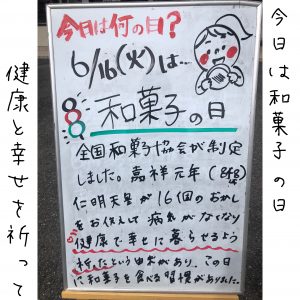 今日は和菓子の日
健康と幸せを祈って
今日は何の日?
6/16(火)は…
和菓子の日
全国和菓子協会が制定
しました。嘉祥元年(848)年
仁明天皇が16個のおかし
をお供えして病気がなくなり
健康で幸せに暮らせるよう
祈ったという由来があり、この日
に和菓子を食べる習慣がありました。